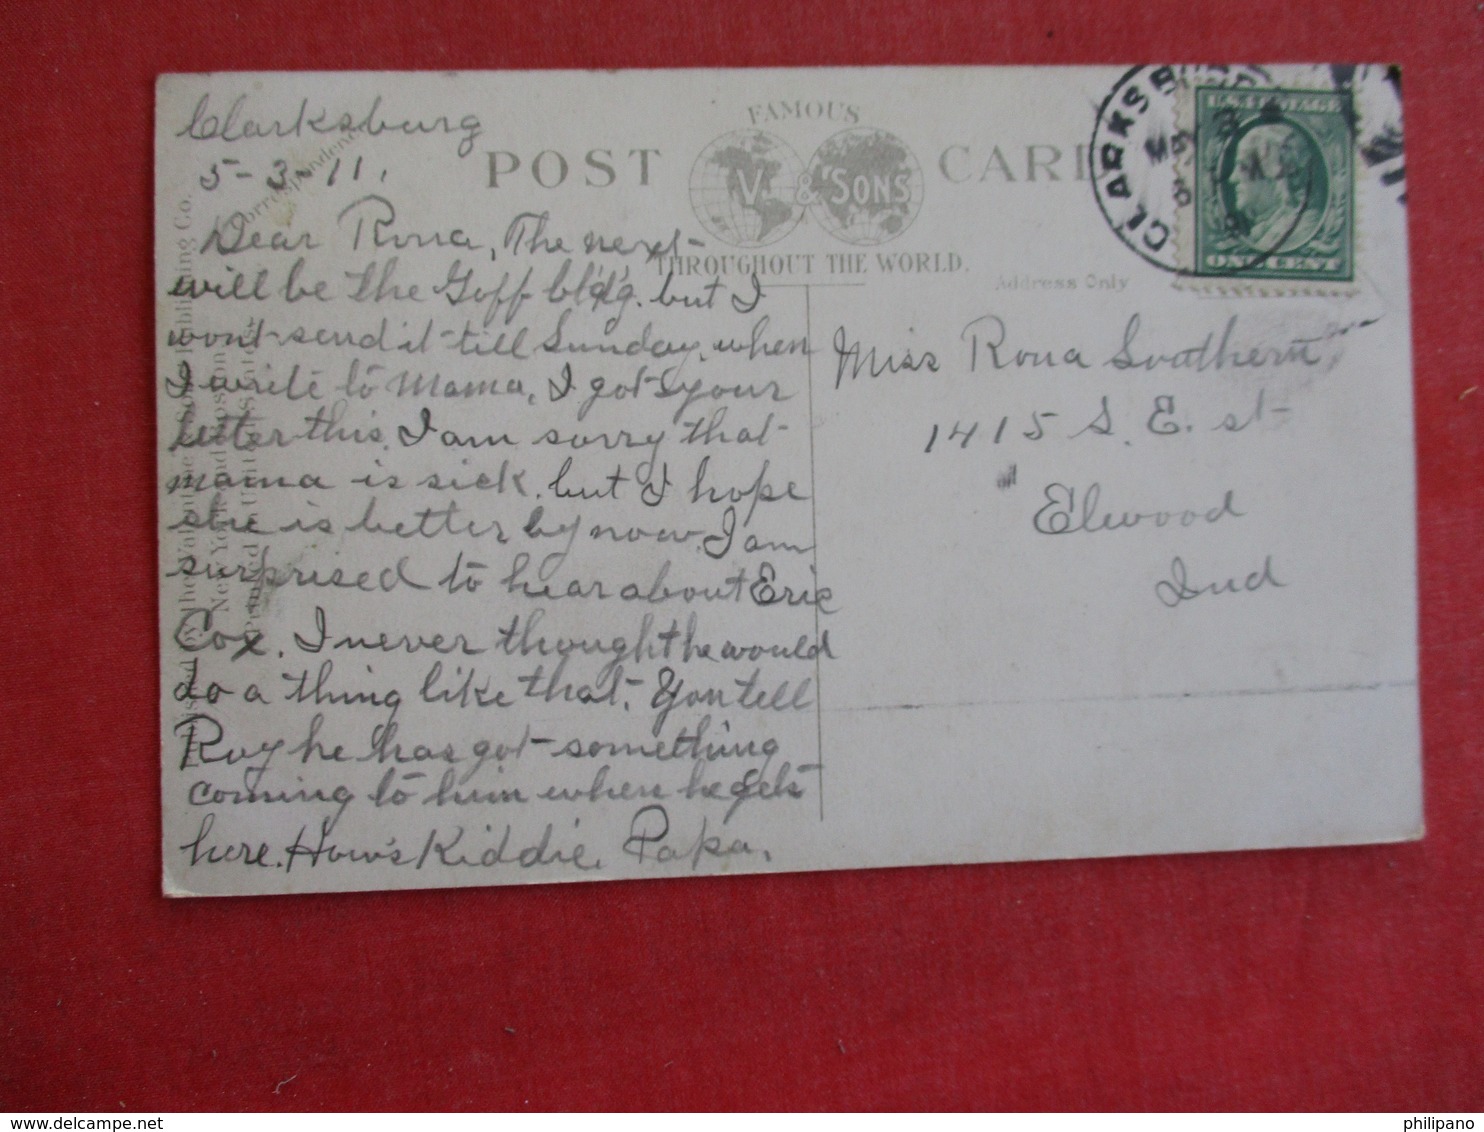 Clarksburg
5-3-11.
Dear Rona, The next
will be the Goff bldg. but I
wont send it till Sunday, when
I write to Mama, I got your
letter this. I am sorry that
mama is sick. but I hope
she is better by now. I am
surprised to hear about Eric
Cox. I never thought he would
do a thing like that. You tell
Roy he has got something
coming to him when he gets
here. How's Kiddie. Papa.
Correspondence
Publishing Co.
New York
FAMOUS
POST CARD
V. & SONS
THROUGHOUT THE WORLD.
Address Only
CLARKSBU
MAY 3
U.S. POSTAGE
ONE CENT
Miss Rona Southern
1415 S. E. st
Elwood
Ind
philipano